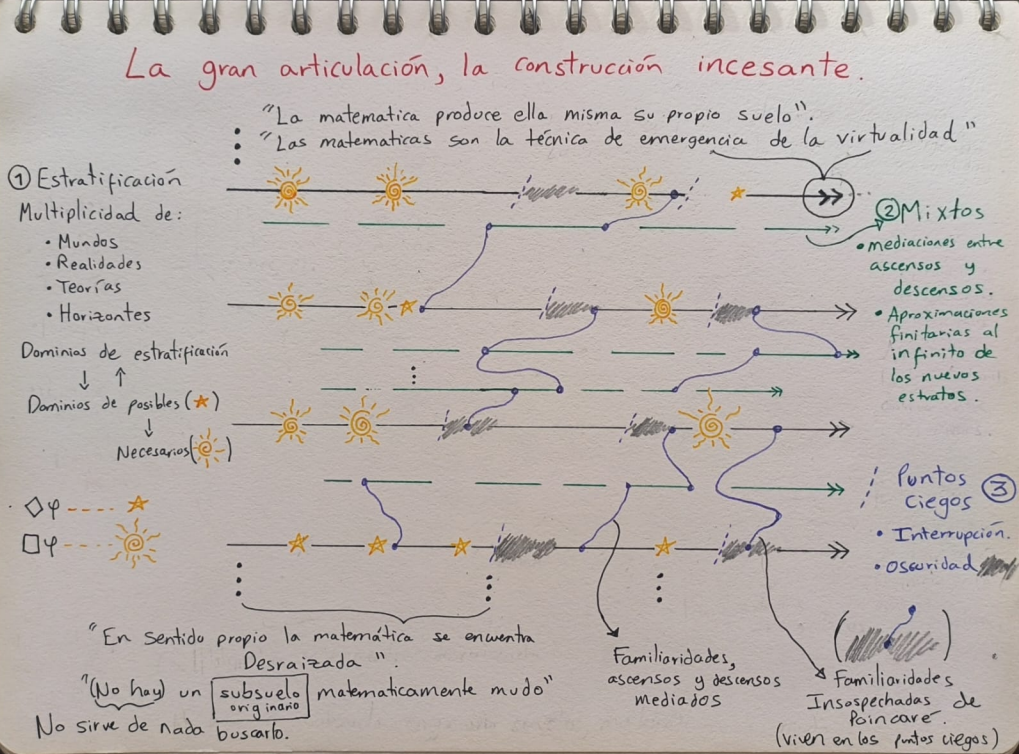 La gran articulación, la construcción incesante.
"La matematica produce ella misma su propio suelo".
"Las matematicas son la técnica de emergencia de la virtualidad"
① Estratificación
Multiplicidad de:
• Mundos
• Realidades
• Teorías
• Horizontes
Dominios de estratificación
↓ ↑
Dominios de posibles (☆)
↓
Necesarios( )
◇φ
□φ
② Mixtos
• mediaciones entre
ascensos y
descensos.
• Aproximaciones
finitarias al
infinito de
los nuevos
estratos.
Puntos ③
ciegos
• Interrupción.
• Oscuridad
"En sentido propio la matemática se encuentra
Desraizada".
"(No hay) un subsuelo originario matematicamente mudo"
No sirve de nada buscarlo.
Familiaridades,
ascensos y descensos
mediados
Familiaridades
Insospechadas de
Poincaré.
(viven en los puntos ciegos)